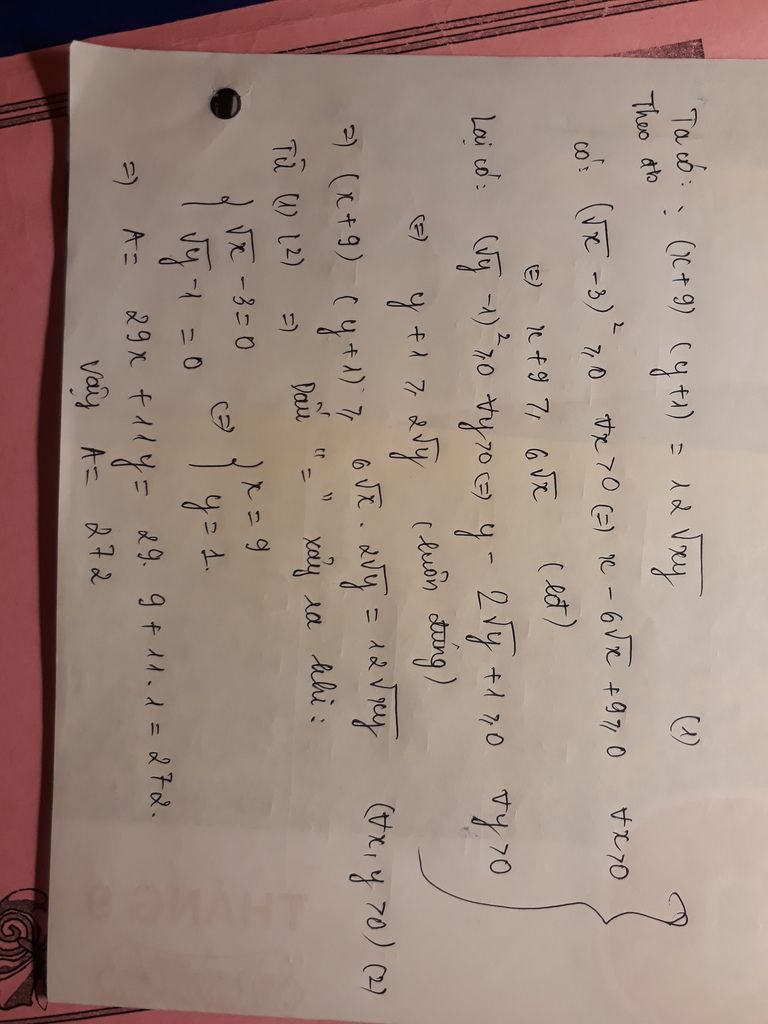 Ta có: (x+9) (y+1) = 12√xy (1)
Theo đb
có: (√x - 3)² ≥ 0 ∀x>0 (=) x - 6√x + 9 ≥ 0 ∀x>0
(=) x + 9 ≥ 6√x (lđ)
Lại có: (√y - 1)² ≥ 0 ∀y>0 (=) y - 2√y + 1 ≥ 0 ∀y>0
(=) y + 1 ≥ 2√y (luôn đúng)
=) (x+9) · (y+1) ≥ 6√x . 2√y = 12√xy (∀x, y >0) (2)
Từ (1) (2) =) Dấu "=" xảy ra khi:
{ √x - 3 = 0
√y - 1 = 0 (=) { x = 9
y = 1.
=) A = 29x + 11y = 29. 9 + 11. 1 = 272.
Vậy A = 272
THÁNG 9